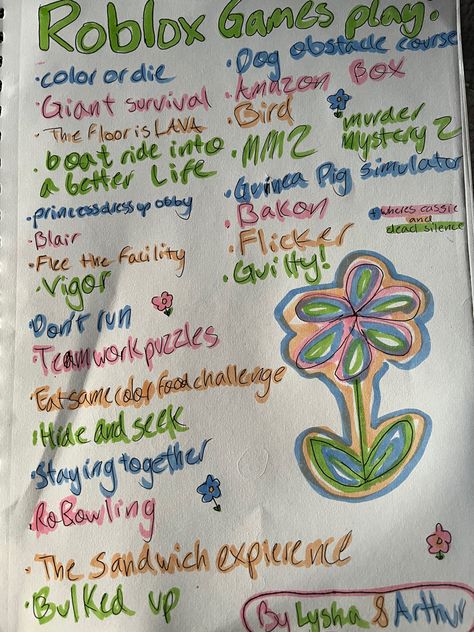 Roblox Games play!
•color or die
•Giant survival
•The Floor is LAVA
•boat ride into
a better Life
•princess dress up obby
•Blair
•Flee the Facility
•Vigor
•Don't run
•Teamwork puzzles
•Eat same color food challenge
•Hide and seek
•Staying together
•RoBowling
•The Sandwich expierence
•Bulked up
•Dog obstacle course
•Amazon Box
•Bird
•MM2
murder
Mystery 2
•Guinea Pig simulator
•Bakon
•Flicker
•Guilty!
wheres cassie
and
dead silence
By Lysha & Arthur